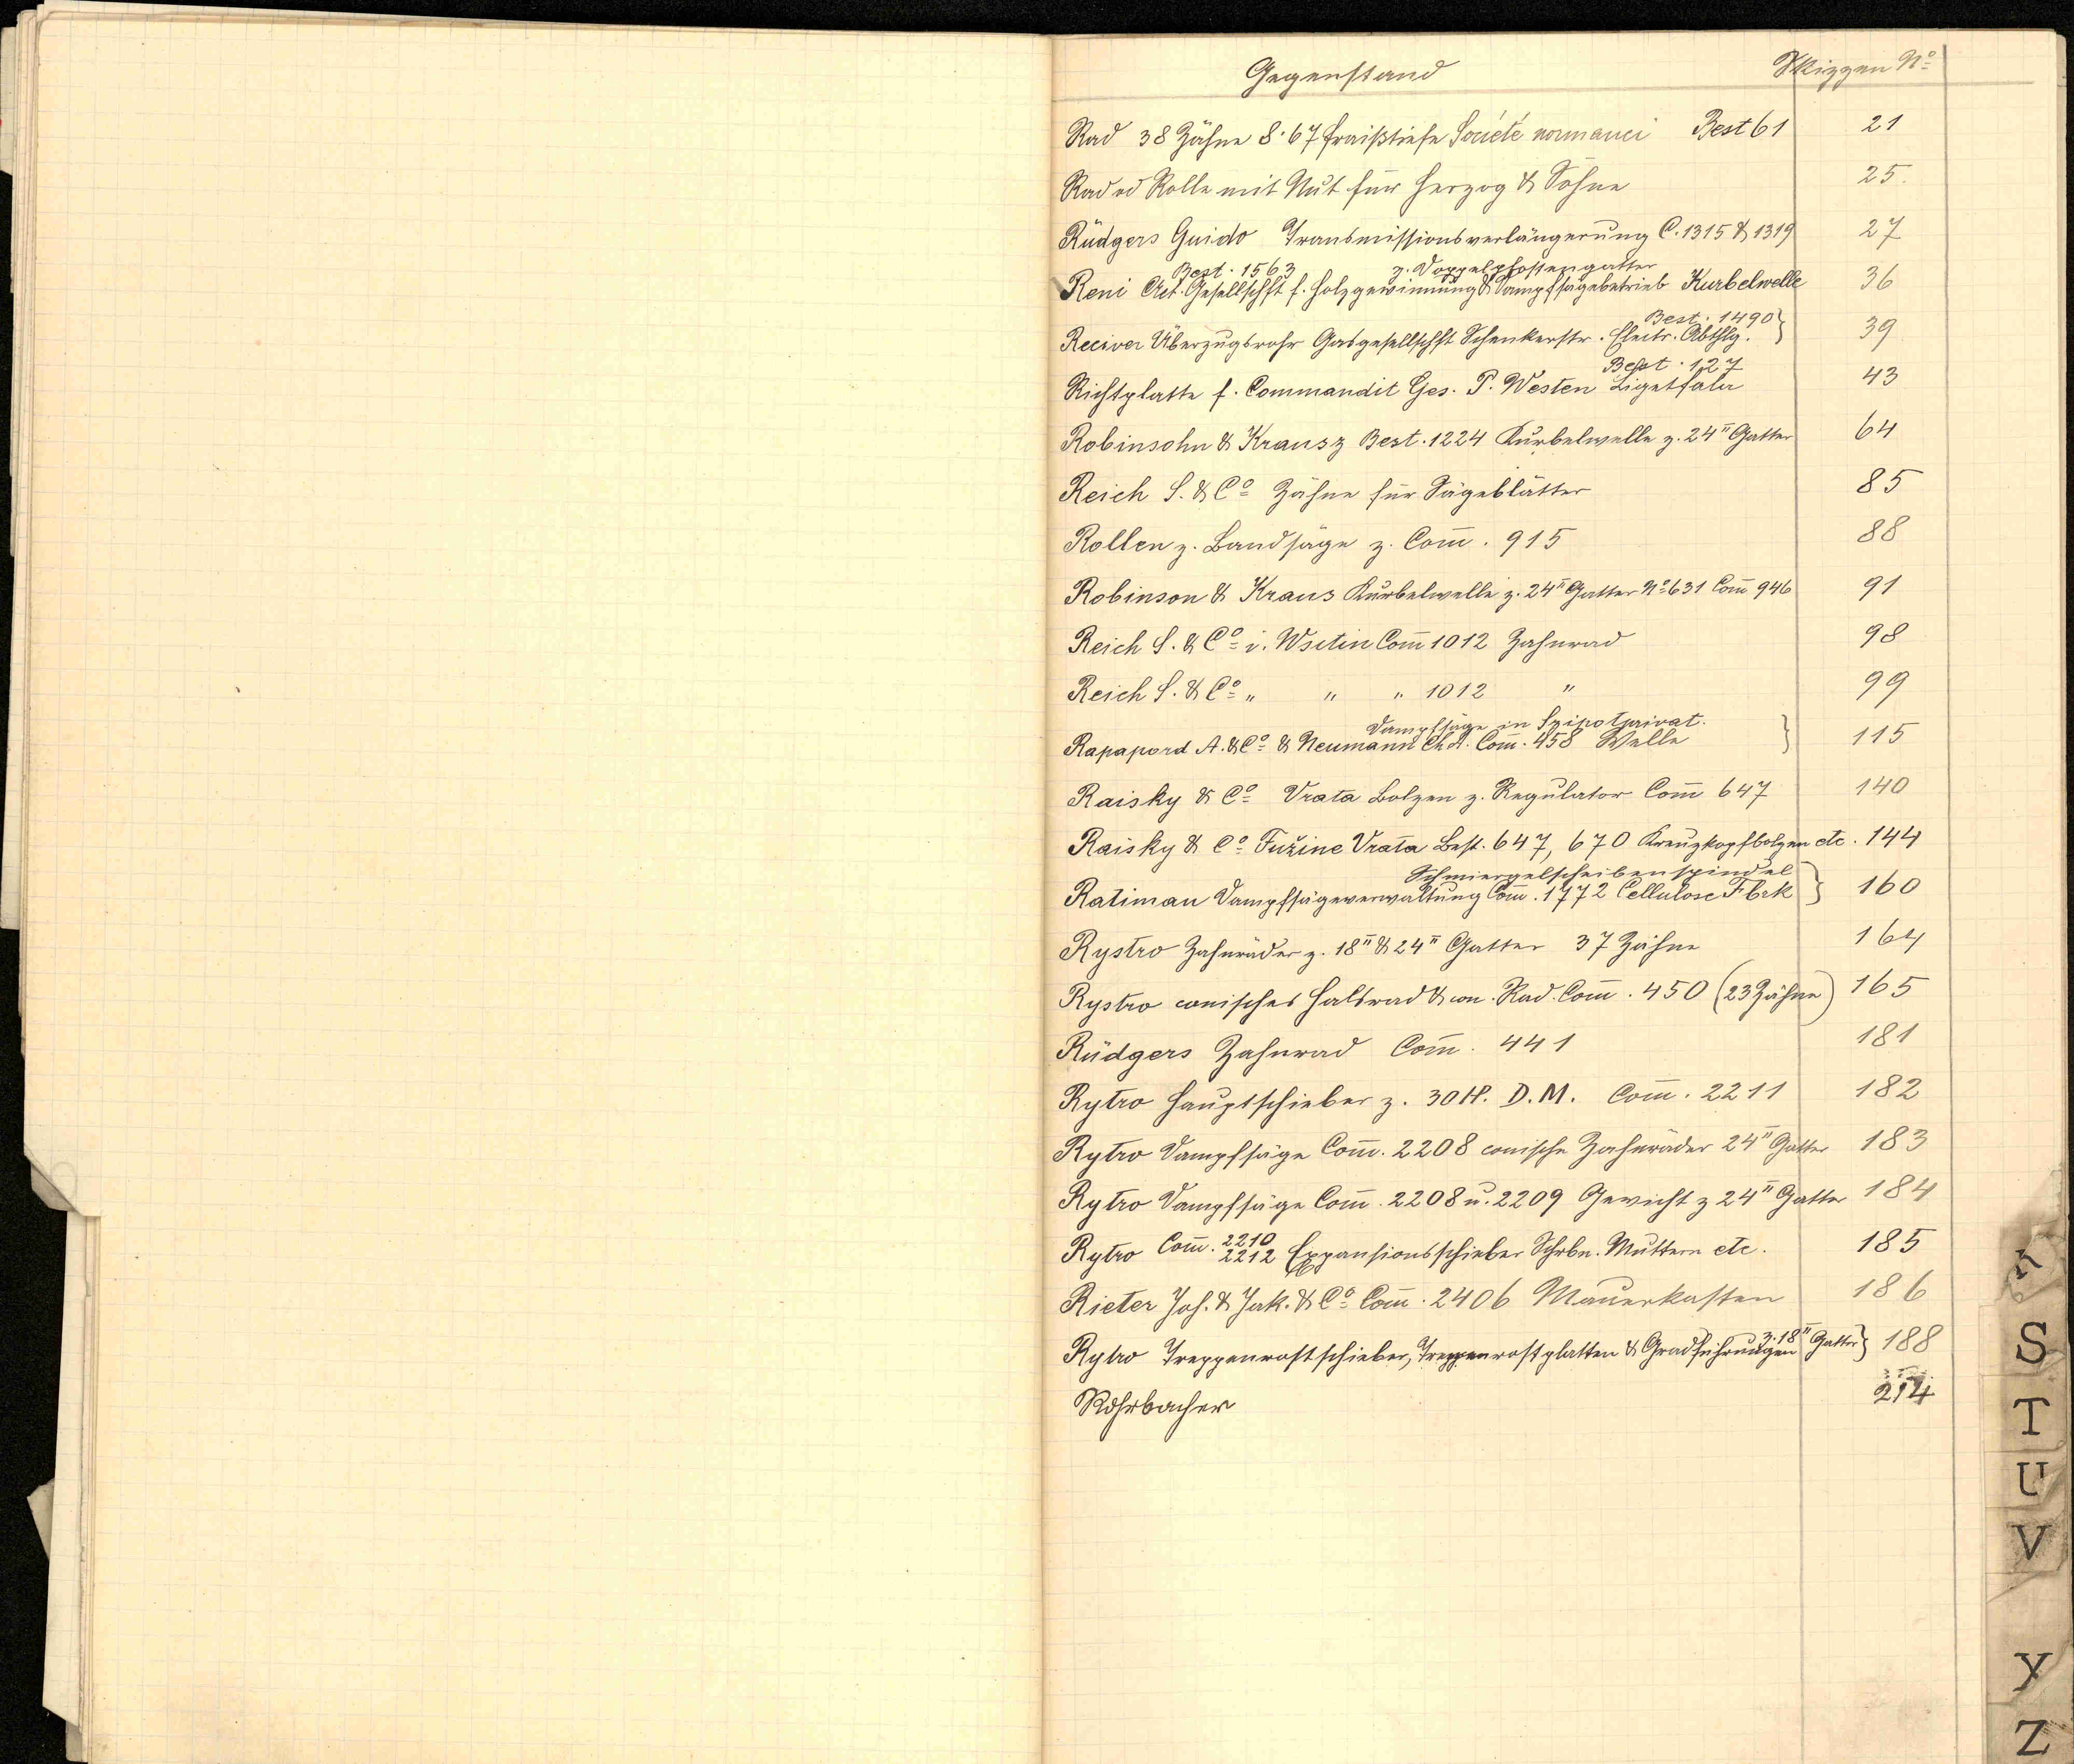 Gegenstand Skizzen Nº
Rad 38 Zähne 8·67 Fraißtiefe Société normanci Best 61 21
Rad od Rolle mit Nut für Herzog & Söhne 25.
Rüdgers Guido Transmissionsverlängerung C. 1315 & 1319 27
Best. 1563 z. Doppelpfostengatter
Reni Act. Gesellschft f. Holzgewinnung & Dampfsägebetrieb Kurbelwelle 36
Best. 1490
Receiver Überzugsrohr Gasgesellschft Schenkerstr. Electr. Abthlg. } 39
Best. 127
Richtplatte f. Commandit Ges. P. Westen Ligetfalu 43
Robinsohn & Krausz Best. 1224 Kurbelwelle z. 24" Gatter 64
Reich S. & Cº Zähne für Sägeblätter 85
Rollen z. Bandsäge z. Com̅. 915 88
Robinson & Kraus Kurbelwelle z. 24" Gatter Nº 631 Com̅ 946 91
Reich S. & Cº i. Wsetin Com̅ 1012 Zahnrad 98
Reich S. & Cº " " " 1012 " 99
Dampfsäge in
Rapapord A. & Cº & Neumann Ch. A. Com̅. 458 Welle } 115
Raisky & Cº Vrata Bolzen z. Regulator Com̅ 647 140
Raisky & Cº Fužine Vrata Best. 647, 670 Kreuzkopfbolzen etc. 144
Schmiergelscheibenspindel
Ratiman Dampfsägeverwaltung Com̅. 1772 Cellulose Fbrk } 160
Rystro Zahnräder z. 18" & 24" Gatter 37 Zähne 164
Rystro conisches Halbrad & con. Rad. Com̅. 450 (23 Zähne) 165
Rüdgers Zahnrad Com̅. 441 181
Rytro Hauptschieber z. 30 H. D. M. Com̅. 2211 182
Rytro Dampfsäge Com̅. 2208 conische Zahnräder 24" Gatter 183
Rytro Dampfsäge Com̅. 2208 u. 2209 Gewicht z 24" Gatter 184
Rytro Com̅. 2210 2212 Expansionsschieber Schrbn. Muttern etc. 185
Rieter Joh. & Jak. & Cº Com̅. 2406 Mauerkasten 186
z. 18" Gatter
Rytro Treppenrostschieber, Treppenrostplatten & Gradführungen } 188
Rohrbacher 214
S
T
U
V
Y
Z